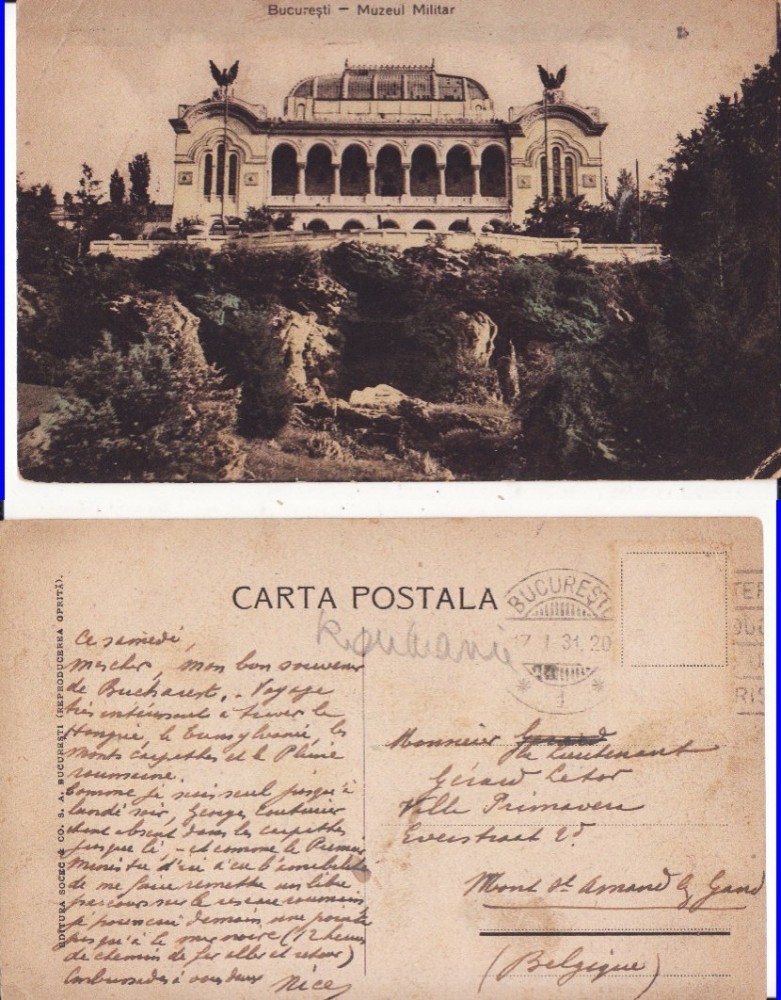 București – Muzeul Militar
CARTA POSTALA
Roumanie
BUCUREȘTI
17 I 31. 20
1
EDITURA SOCEC & CO. S. A. BUCUREȘTI (REPRODUCEREA OPRITĂ).
Ce samedi,
Mon cher, mon bon souvenir
de Bucharest. - Voyage
très intéressant à traver la
Hongrie, la Transylvanie, les
monts Carpathes et la Plaine
roumaine.
Comme je suis seul jusqu'à
lundi soir, Georges
étant absent dans les Carpathes
jusque là - et comme le Premier
Ministre d'ici a eu l'amabilité
de me faire remettre un libre
parcours sur le réseau roumain,
je pousserai demain une pointe
jusqu'à la mer noire (12 heures
de chemin de fer aller et retour)
Embrassades à vous deux
Monsieur
le Lieutenant
Gérard
Villa Primavera
Mont St Amand lz Gand
(Belgique)